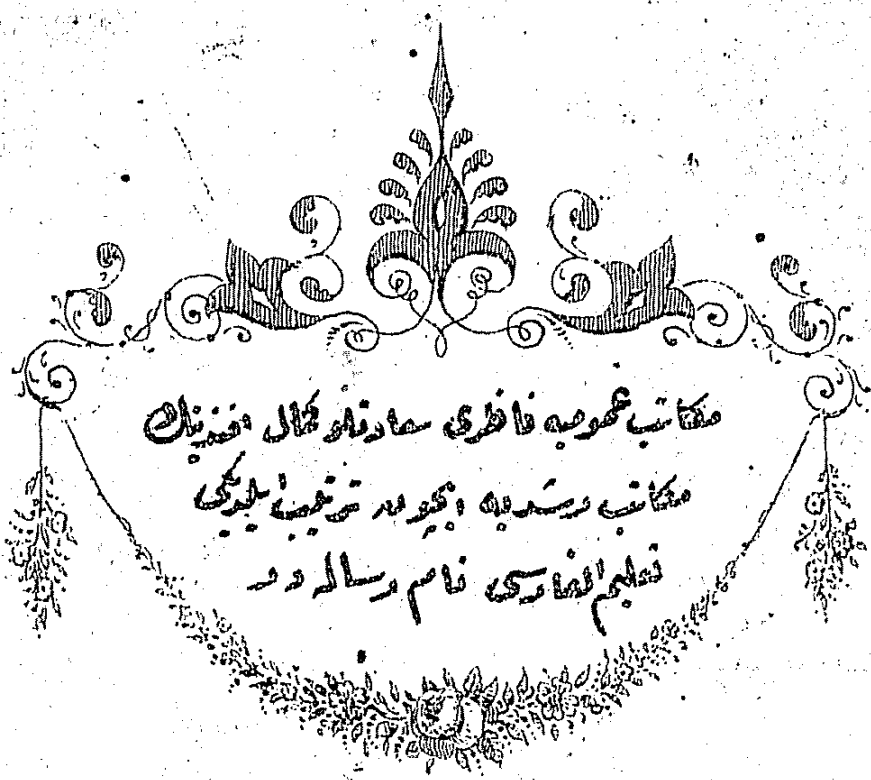 مكاتب عموميه ناظرى سعادتلو كمال افندينك
مكاتب رشديه ايچون ترتيب ايلديكى
تعليم الفارسى نام رساله در